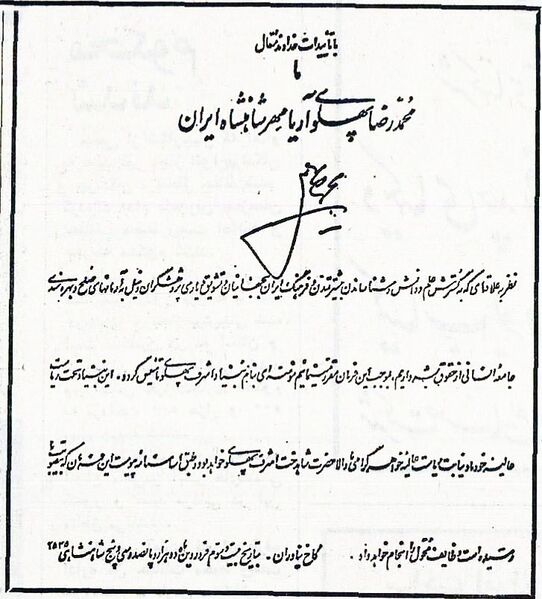 با تأییدات خداوند متعال
ما
محمد رضا پهلوی آریامهر شاهنشاه ایران
نظر به علاقه‌ای که به گسترش علم و دانش و شناساندن بیشتر تمدن و فرهنگ ایران بجهانیان و تشویق و یاری پژوهشگران و نیل به آرمانهای صلح و بهره‌مندی
جامعه انسانی از حقوق بشر داریم، بموجب این فرمان مقرر میداریم مؤسسه‌ای بنام بنیاد اشرف پهلوی تأسیس گردد. این بنیاد تحت ریاست
عالیه خود ما و نیابت ریاست عالیه خواهر گرامی ما والاحضرت شاهدخت اشرف پهلوی خواهد بود و طبق اساسنامه پیوست این فرمان که بتصویب ما
رسیده است وظایف محول را انجام خواهد داد. کاخ نیاوران. بتاریخ بیست و سوم فروردین ماه دو هزار و پانصد و سی و پنج شاهنشاهی ۲۵۳۵